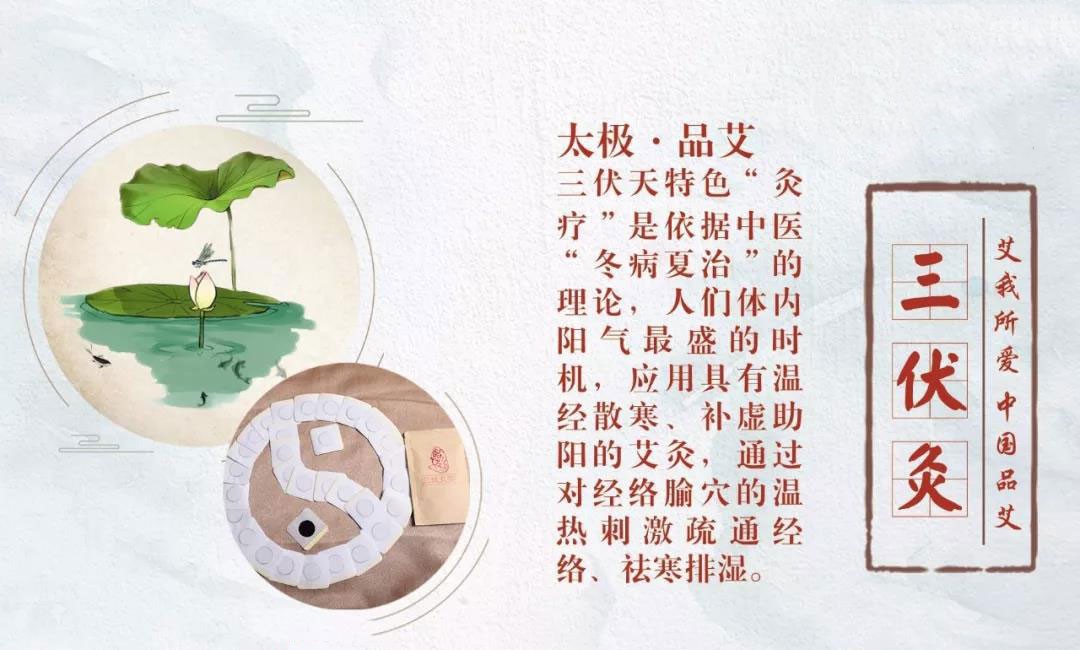 太极·品艾
三伏天特色“灸
疗”是依据中医
“冬病夏治”的
理论，人们体内
阳气最盛的时
机，应用具有温
经散寒、补虚助
阳的艾灸，通过
对经络腧穴的温
热刺激疏通经
络、祛寒排湿。
三伏灸
艾我所爱 中国品艾